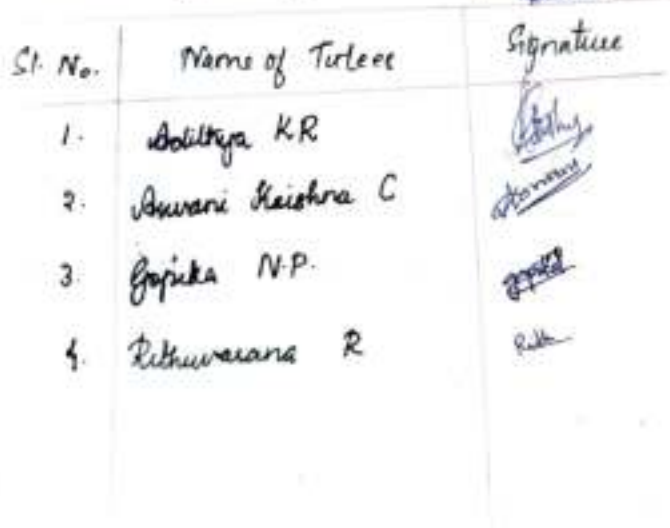 Sl. No. Name of Tutee Signature
1. Adithya KR
2. Anvani Krishna C
3. Gopika N.P.
4. Rithuvarana R